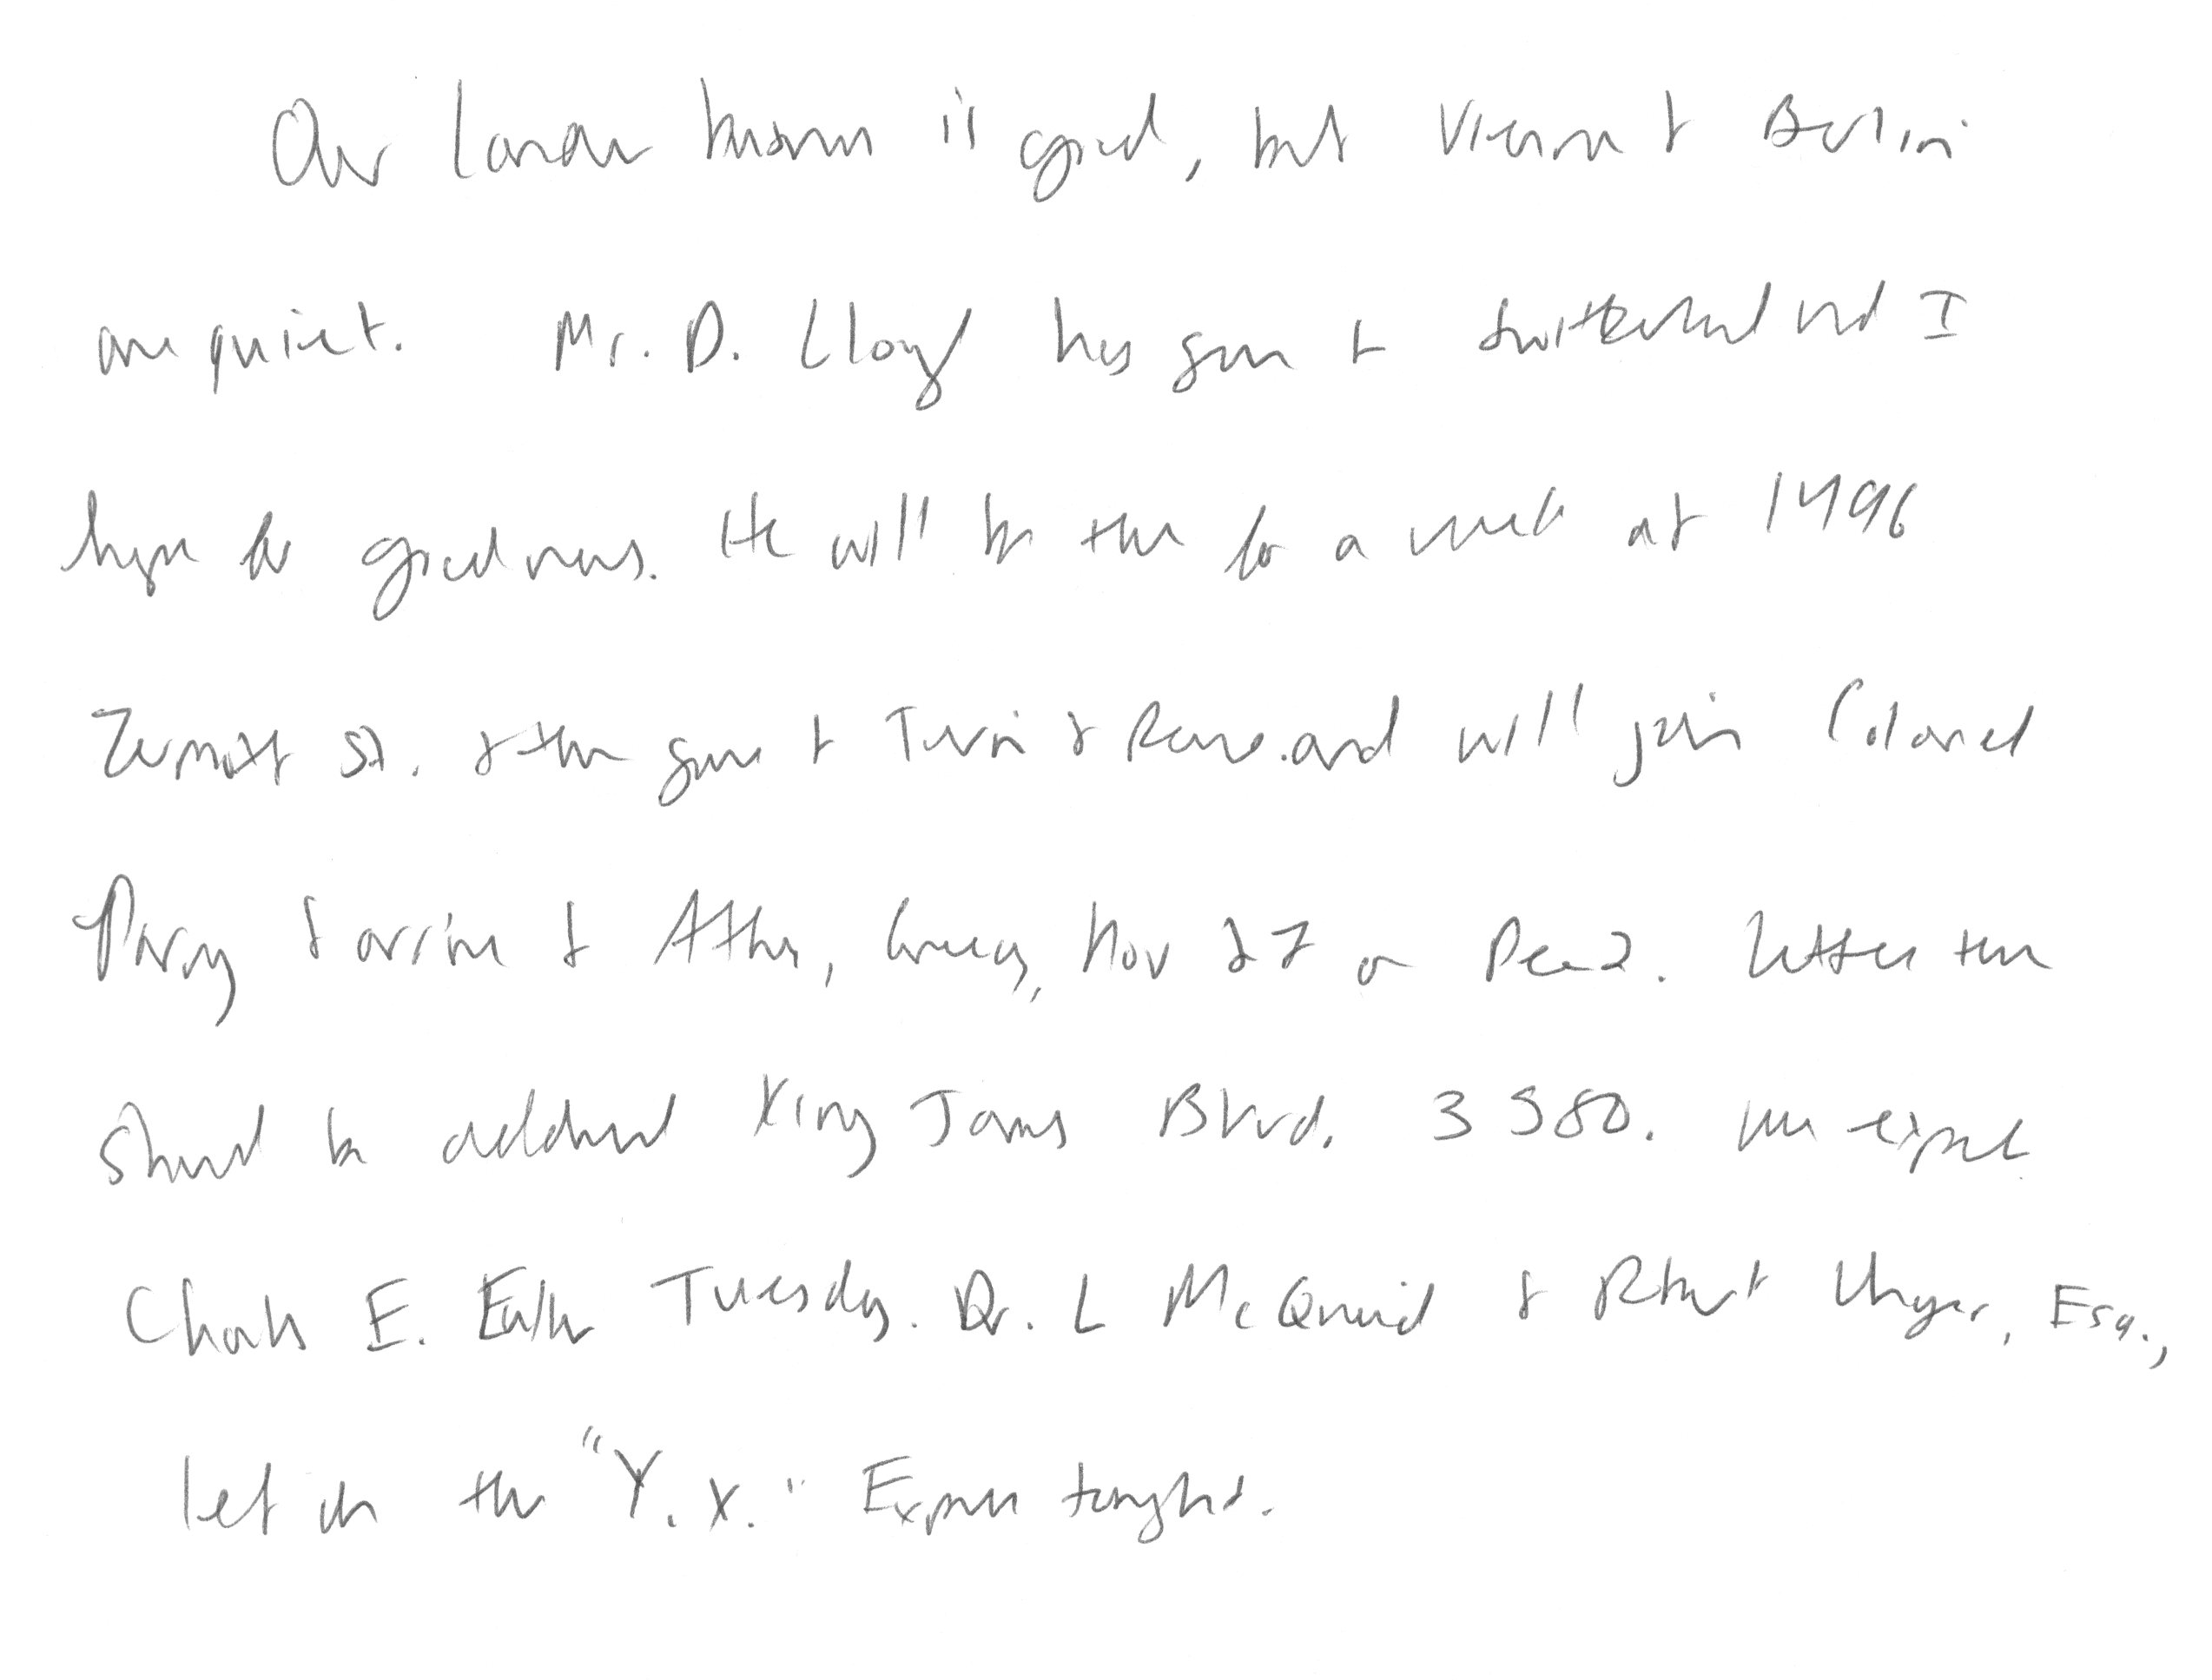 Our London business is good, but Vienna & Berlin
are quiet. Mr. D. Lloyd has gone to Switzerland and I
hope for good news. He will be there for a week at 1496
Zermott St. & then goes to Turin & Rome and will join Colonel
Parry & arrive at Athens, Greece, Nov 27 or Dec 2. Letters there
should be addressed King James Blvd. 3580. We expect
Charles E. Fuller Tuesday. Dr. L McQuaid & Robert Unger, Esq.,
left on the "Y.X." Express tonight.